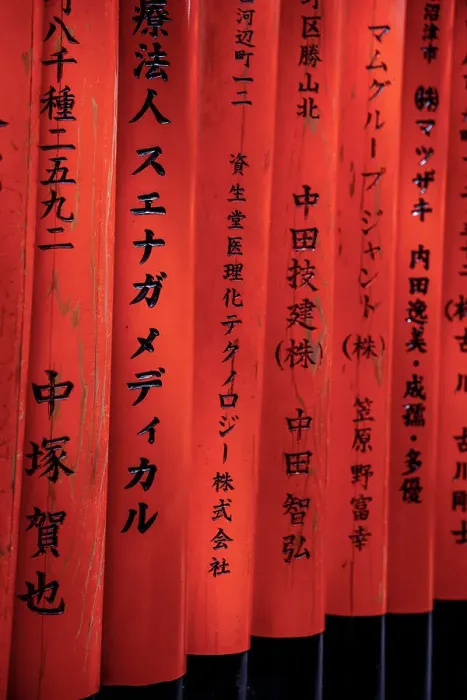 (株)古川 古川剛士
沼津市 ㈱マツザキ 内田逸美・成孺・多優
マムグループ ジャント(株) 笠原野富幸
町区勝山北 中田技建(株) 中田智弘
河辺町一二 資生堂医理化テクノロジー株式会社
療法人 スエナガメディカル
八千種二五九二 中塚賀也